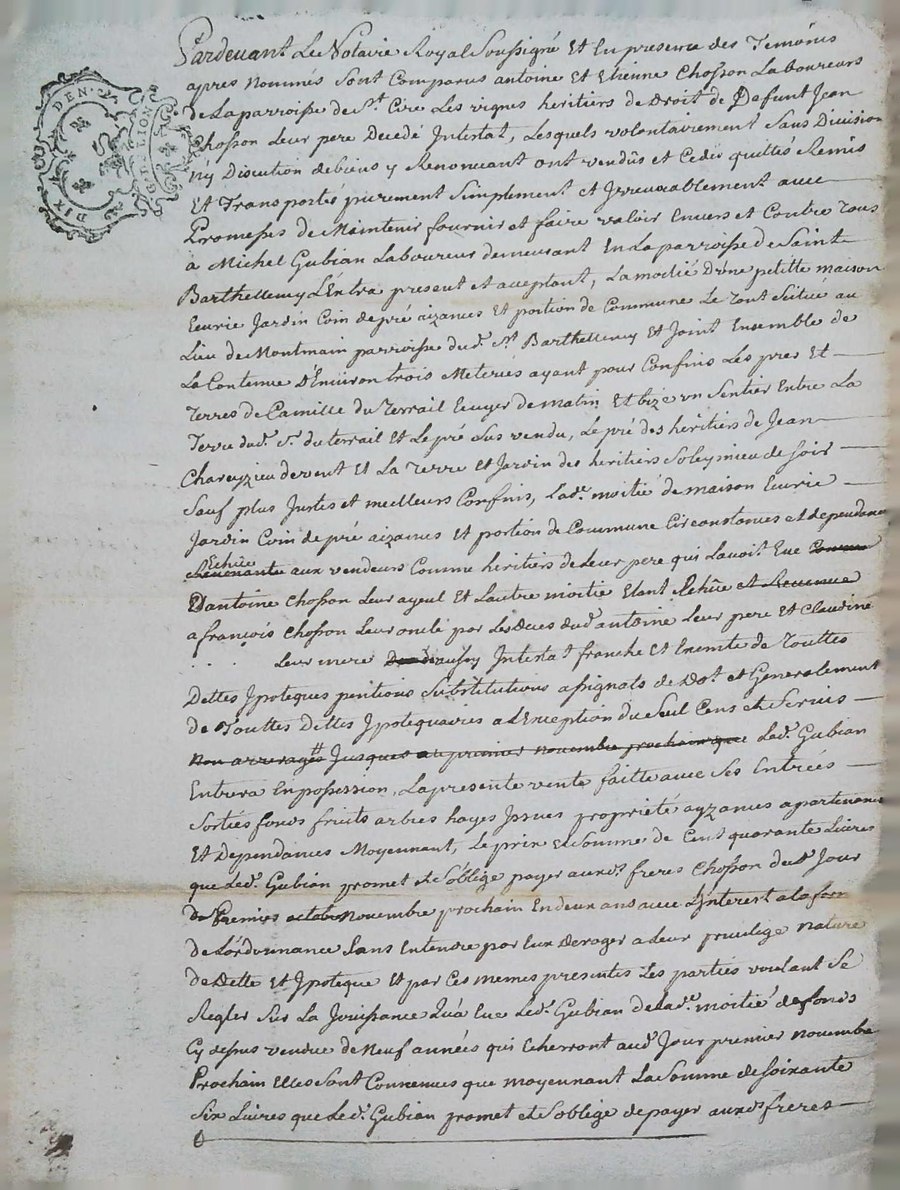 DIX DEN.
G. DE LION
Pardevant Le Notaire Royal Soussigné Et En presence des Temoins
apres nommés Sont Comparus antoine Et Etienne Chosson Laboureurs
de La parroisse de St. Cire Les vignes heritiers de Droit de Defunt Jean
Chosson Leur pere Decedé Intestat, Lesquels volontairement Sans Division
ny Discution de biens y Renonceant ont vendûs et Cedés quittés Remis
Et Transportés purement Simplement et Irrevocablement avec
Promesses de Maintenir fournir et faire valoir Envers et Contre Tous
a Michel Gubian Laboureur demeurant En La parroisse de Saint
Barthellemy L'Entra present et acceptant, La moitié D'une petitte maison
Ecurie Jardin Coin de pré aizances Et portion de Commune Le Tout Scitué au
Lieu de Montmain parroisse dud. St. Barthellemy Et Joint Ensemble de
La Contenue D'Environ trois Meterées ayant pour Confins Les pres Et
Terres de Camille du Terrail Ecuyer de matin Et bize un Sentier Entre La
Terre dud. Sr. du terrail Et Le pré Sus vendu, Le pré des heritiers de Jean
Chareyzieu de vent Et La Terre et Jardin des heritiers Soleymieu de Soir
Sauf plus Justes et meilleurs Confins, Lade. moitié de maison Ecurie
Jardin Coin de pré aizances Et portion de Commune Circonstances et dependances
Echüe
aux vendeurs Comme heritiers de Leur pere qui Lavoit Eue Comme
D'antoine Chosson Leur ayeul Et Lautre moitié Etant Echûe et Revenue
a françois Chosson Leur oncle par Les Deces dud. antoine Leur pere Et Claudine
. . . Leur mere aussy Intestat franche Et Exemte de Touttes
Dettes Ypoteques penitions Substitutions assignats de Dot et Generalement
de Touttes Dettes Ypotequaires a L'Exception du Seul Cens et Servis
Non arreragés Jusques au premier Novembre prochain que Led. Gubian
Entrera En possession, La presente vente faitte avec Ses Entrées
Sorties fonds fruits arbres hayes Issues propriété ayzances apartenances
Et Dependances Moyennant, Le prix et Somme de Cent quarante Livres
que Led. Gubian promet et S'oblige payer auxds. freres Chosson dud. Jour
du Premier octobre Novembre prochain En deux ans avec L'Interest a la form
de L'ordonnance Sans Entendre par Eux Deroger a Leur privilege nature
de Dette Et Ypoteque Et par Ces memes presentes Les parties voulant Se
Regler Sur La Jouissance Qu'a Eue Led. Gubian de Lade. moitié de fonds
Cy dessus vendue de Neuf années qui Echerront aud. Jour premier novembre
Prochain Elles Sont Convenues que moyennant La Somme de Soixante
Six Livres que Led. Gubian promet et S'oblige de payer auxds. freres